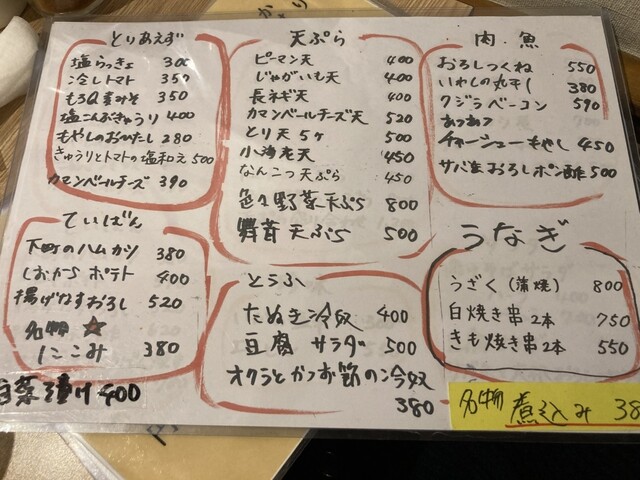 とりあえず
塩らっきょ 300
冷しトマト 350
もろQ 麦みそ 350
塩こんぶきゅうり 400
もやしのおかだし 280
きゅうりとトマトの塩和え 500
カマンベールチーズ 390
天ぷら
ピーマン天 400
じゃがいも天 400
長ネギ天 400
カマンベールチーズ天 520
とり天 5ヶ 500
小海老天 450
なんこつ天ぷら 450
色々野菜天ぷら 800
舞茸天ぷら 500
肉・魚
おろしつくね 550
いわしの丸干し 380
クジラベーコン 590
あつあつ
チャーシューもやし 450
サバ おろしポン酢 500
ていばん
下町のハムカツ 380
しおからポテト 400
揚げなすおろし 520
名物
にこみ 380
白菜漬け 400
とうふ
たぬき冷奴 400
豆腐サラダ 500
オクラとかつお節の冷奴
380
うなぎ
うざく(蒲焼) 800
白焼き串2本 750
きも焼き串2本 550
名物 煮込み 38